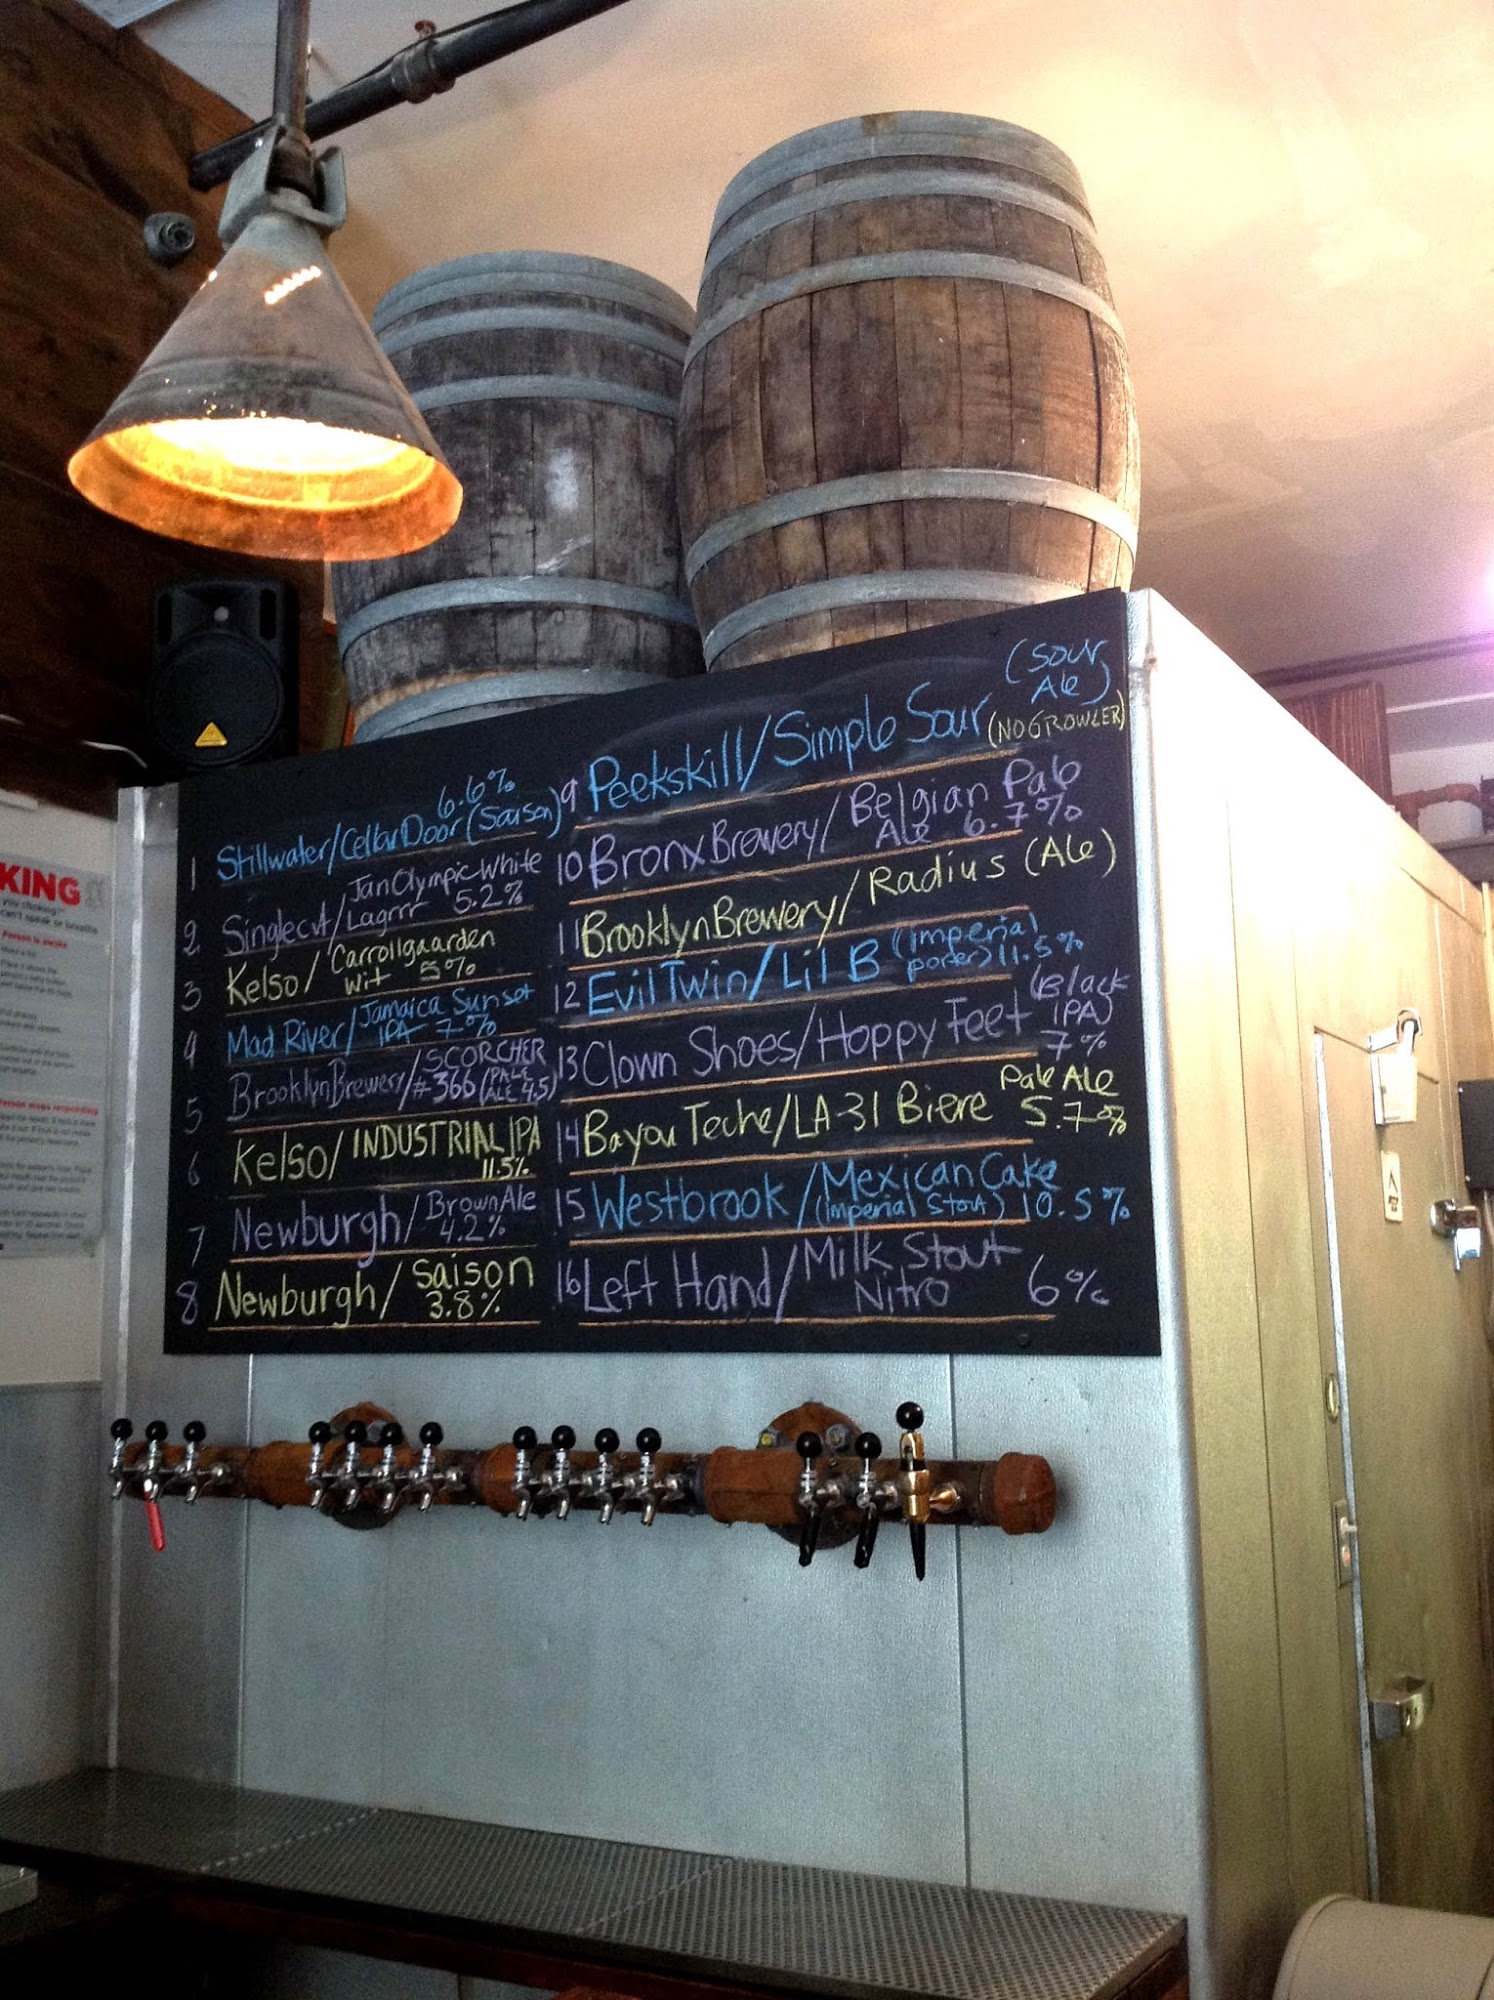 6.6%
1 Stillwater/Cellar Door (Saison)
2 Singlecut/Jan Olympic White
Lagrrr 5.2%
3 Kelso/Carrollgaarden
Wit 5%
4 Mad River/Jamaica Sunset
IPA 7%
5 Brooklyn Brewery/SCORCHER
#366 (PALE
ALE 4.5)
6 Kelso/INDUSTRIAL IPA
11.5%
7 Newburgh/Brown Ale
4.2%
8 Newburgh/Saison
3.8%
(Sour
Ale)
9 Peekskill/Simple Sour (NO GROWLER)
10 Bronx Brewery/Belgian Pale
Ale 6.7%
11 Brooklyn Brewery/Radius (Ale)
12 Evil Twin/Lil B (Imperial
porter) 11.5%
13 Clown Shoes/Hoppy Feet (Black
IPA)
7%
14 Bayou Teche/LA-31 Biere Pale Ale
5.7%
15 Westbrook/Mexican Cake
(Imperial Stout) 10.5%
16 Left Hand/Milk Stout
Nitro 6%
KING